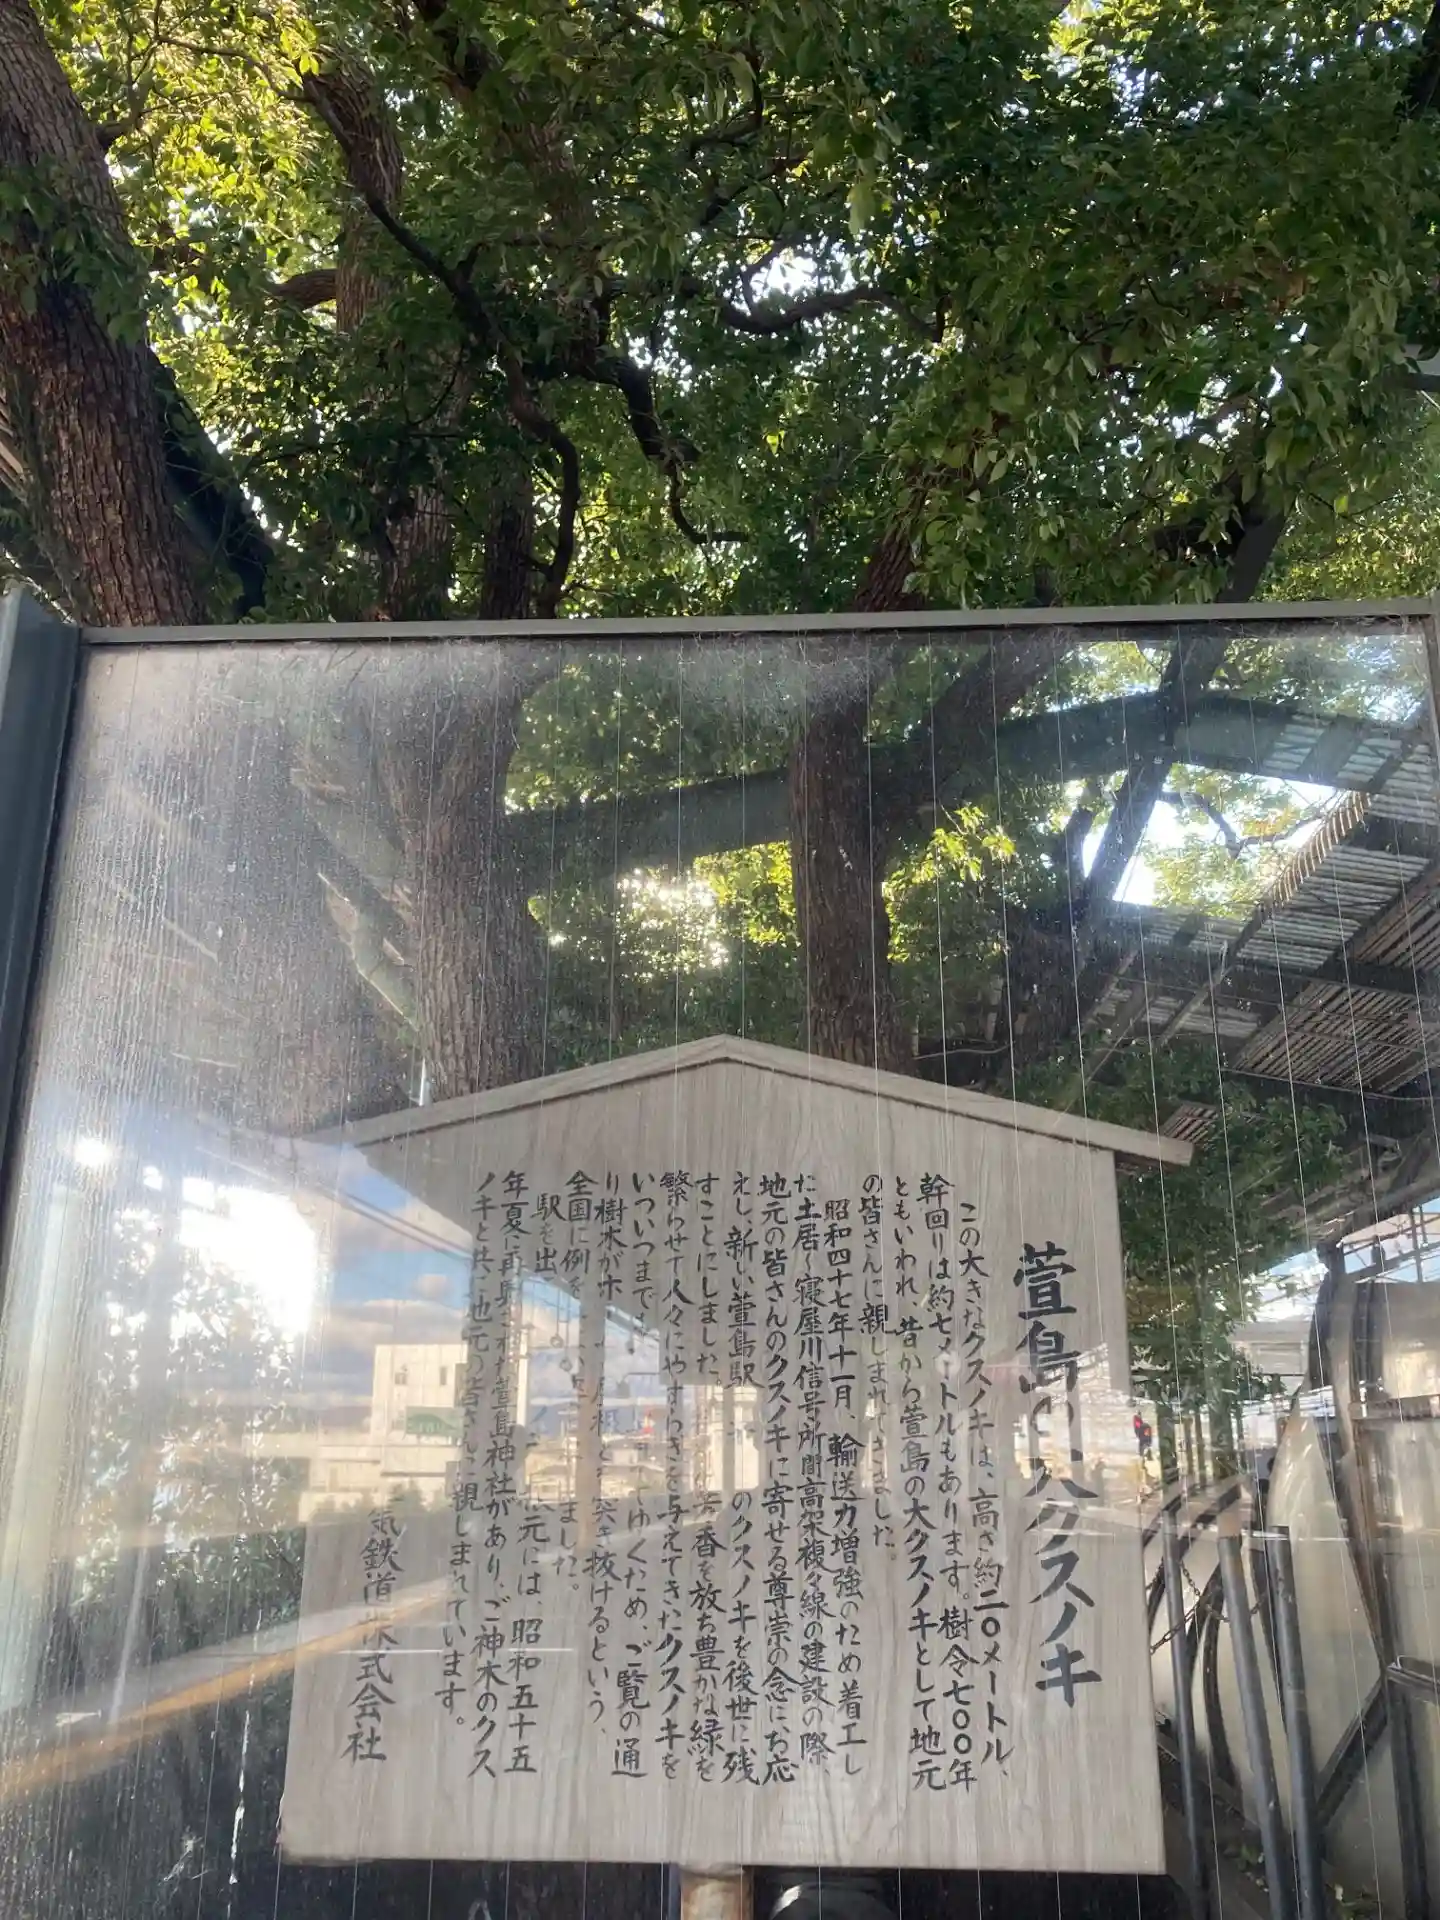 萱島の大クスノキ
この大きなクスノキは、高さ約二〇メートル、
幹回りは約七メートルもあります。樹令七〇〇年
ともいわれ、昔から萱島の大クスノキとして地元
の皆さんに親しまれてきました。
昭和四十七年十一月、輸送力増強のため着工し
た土居〜寝屋川信号所間高架複々線の建設の際、
地元の皆さんのクスノキに寄せる尊崇の念にお応
えし、新しい萱島駅 のクスノキを後世に残
すことにしました。
香を放ち豊かな緑を
繁らせて人々にやすらぎを与えてきたクスノキを
いついつまでも てゆくため、ご覧の通
り樹木がホ 屋根を突き抜けるという、
全国に例を ました。
駅を出 根元には、昭和五十五
年夏に再興された萱島神社があり、ご神木のクス
ノキと共に地元の皆さんに親しまれています。
氣鉄道株式会社